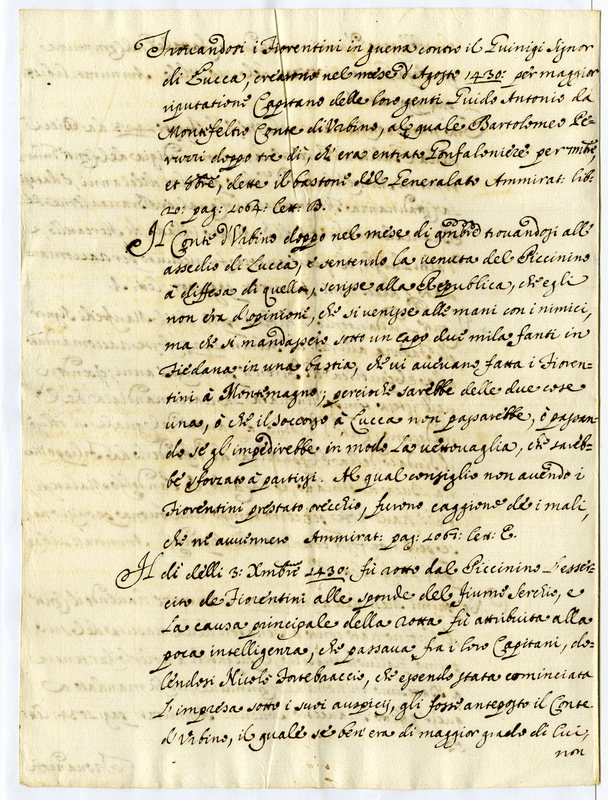 Trouandosi i Fiorentini in guerra contro il Guinigi Signor
di Lucca, crearono nel mese d'Agosto 1430: per maggior
riputatione Capitano delle loro genti Guido Antonio da
Montefeltro Conte di Vrbino, al quale Bartolomeo Pe-
ruzzi doppo tre dì, che era entrato Gonfaloniere per 7mbre,
et 8bre, dette il bastone del Generalato Ammirat: lib:
20: pag: 1064: lett: B.
Il Conte d'Vrbino doppo nel mese di 9mbre trouandosi all'
assedio di Lucca, e sentendo la venuta del Piccinino
à diffesa di quella, scrisse alla Republica, che egli
non era d'opinione, che si venisse alle mani con i nimici,
ma che si mandassero sotto un capo due mila fanti in
Fiedana in una bastia, che vi aueuano fatta i Fioren-
tini à Montemagno; percioche sarebbe delle due cose
una, ò che il soccorso à Lucca non passarebbe, ò passan-
do se gl'impedirebbe in modo la vettouaglia, che sareb-
be sforzato à partirsi. Al qual consiglio non auendo i
Fiorentini prestato orecchio, furono caggione de i mali,
che ne auuennero Ammirat: pag: 1067: lett: E.
Il dì delli 3: Xmbre 1430: fù rotto dal Piccinino l'esser-
cito de Fiorentini alle sponde del fiume Serchio, e
la causa principale della rotta fù attribuita alla
poca intelligenza, che passaua fra i loro Capitani, do-
lendosi Nicolò Fortebraccio, che essendo stata cominciata
l'impresa sotto i suoi auspicij, gli fosse anteposto il Conte
d'Vrbino, il quale se ben era di maggior grado di lui,
non